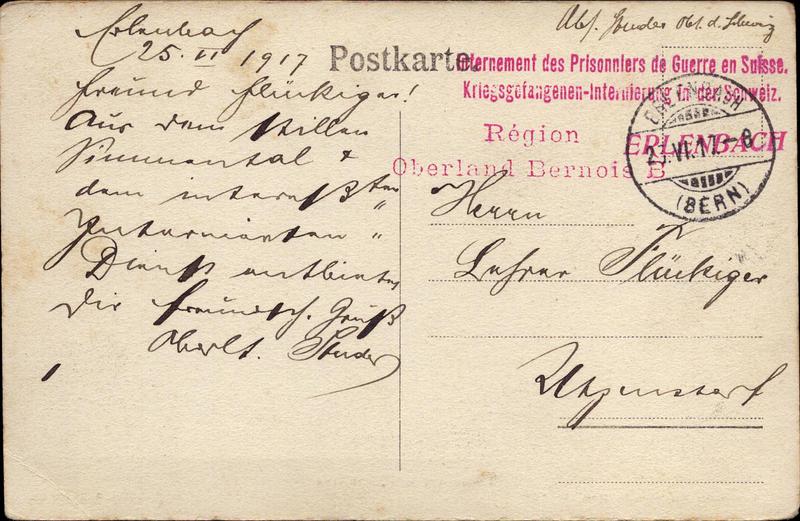 Erlenbach
25. VI 1917
Freund Flückiger!
Aus dem stillen
Simmental &
dem interess'ten
Internierten "
Dienst entbietet
Dir freundsch. Gruß
Oberlt. Studer
Postkarte.
Abs. Studer Obt. d. Schweiz
Internement des Prisonniers de Guerre en Suisse.
Kriegsgefangenen-Internierung in der Schweiz.
Région ERLENBACH
Oberland Bernois B
ERLENBACH
25.VI.17.-8
(BERN)
Herrn
Lehrer Flückiger
Utzenstorf